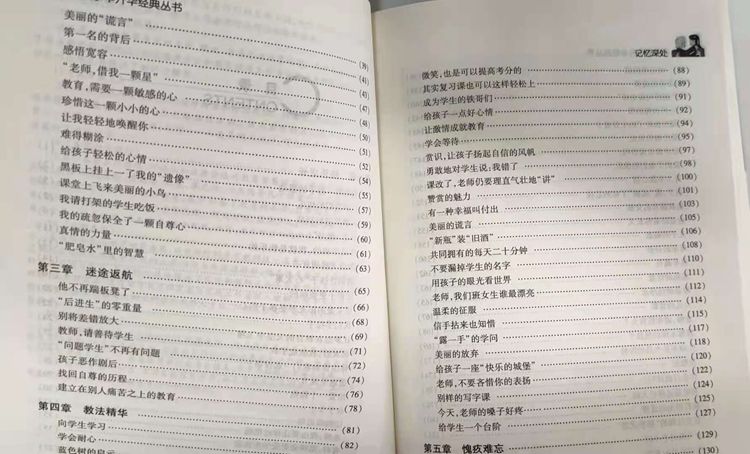 开华经典丛书
美丽的“谎言” (39)
第一名的背后 (41)
感悟宽容 (43)
“老师，借我一颗星” (45)
教育，需要一颗敏感的心 (47)
珍惜这一颗小小的心 (48)
让我轻轻地唤醒你 (50)
难得糊涂 (51)
给孩子轻松的心情 (52)
黑板上挂上一了我的“遗像” (54)
课堂上飞来美丽的小鸟 (55)
我请打架的学生吃饭 (57)
我的疏忽保全了一颗自尊心 (60)
真情的力量 (61)
“肥皂水”里的智慧 (63)
第三章 迷途返航
他不再踹板凳了 (65)
“后进生”的零重量 (66)
别将差错放大 (68)
教师，请善待学生 (69)
“问题学生”不再有问题 (71)
孩子恶作剧后 (74)
找回自尊的历程 (76)
建立在别人痛苦之上的教育 (78)
第四章 教法精华
向学生学习 (81)
学会耐心 (82)
蓝色树的启示
记忆深处
微笑，也是可以提高考分的 (88)
其实复习课也可以这样轻松上 (89)
成为学生的铁哥们 (91)
给孩子一点好心情 (92)
让激情成就教育 (94)
学会等待 (95)
赏识，让孩子扬起自信的风帆 (97)
勇敢地对学生说：我错了 (98)
课改了，老师仍要理直气壮地“讲” (100)
赞赏的魅力 (101)
有一种幸福叫付出 (103)
美丽的谎言 (105)
“新瓶”装“旧酒” (106)
共同拥有的每天二十分钟 (108)
不要漏掉学生的名字 (110)
用孩子的眼光看世界 (111)
老师，我们班女生谁最漂亮 (112)
温柔的征服 (114)
信手拈来也知惜 (115)
“露一手”的学问 (117)
美丽的放弃 (118)
给孩子一座“快乐的城堡” (120)
老师，不要吝惜你的表扬 (122)
别样的写字课 (124)
今天，老师的嗓子好疼 (125)
给学生一个台阶 (127)
第五章 愧疚难忘 (129)
(130)